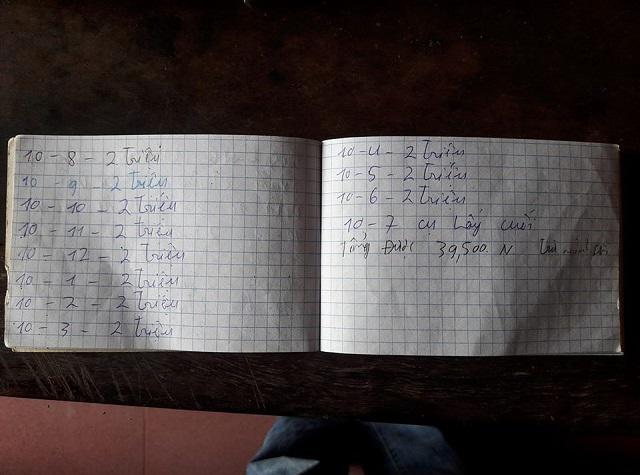 10 - 8 - 2 triệu
10 - 9 - 2 triệu
10 - 10 - 2 triệu
10 - 11 - 2 triệu
10 - 12 - 2 triệu
10 - 1 - 2 triệu
10 - 2 - 2 triệu
10 - 3 - 2 triệu
10 - 4 - 2 triệu
10 - 5 - 2 triệu
10 - 6 - 2 triệu
10 - 7 cụ lấy cuối
Tổng được 39,500 N